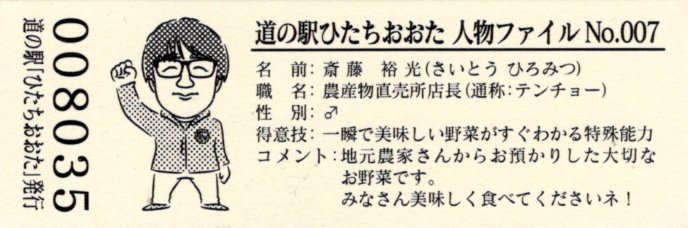 008035
道の駅「ひたちおおた」発行
道の駅ひたちおおた 人物ファイル No.007
名　前：斎藤　裕光(さいとう ひろみつ)
職　名：農産物直売所店長(通称：テンチョー)
性　別：♂
得意技：一瞬で美味しい野菜がすぐわかる特殊能力
コメント：地元農家さんからお預かりした大切な
お野菜です。
みなさん美味しく食べてくださいネ！